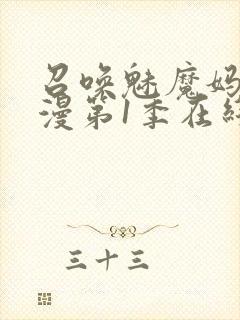 召唤魅魔妈
漫第1季在线
三十三